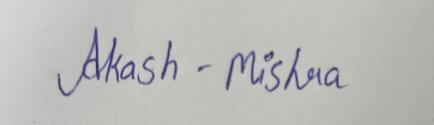 Akash - Mishra